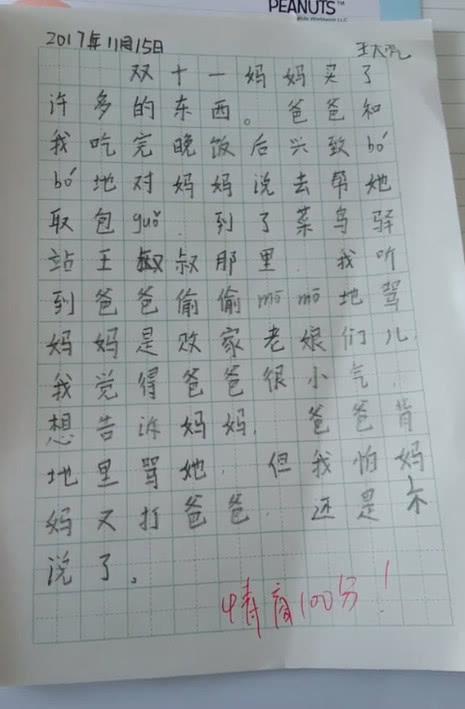 PEANUTS™
2017年11月15日
王大亮
双十一妈妈买了
许多的东西。爸爸和
我吃完晚饭后兴致bó
bó地对妈妈说去帮她
取包guǒ. 到了菜鸟驿
站王叔叔那里. 我听
到爸爸偷偷mōmō地骂
妈妈是败家老娘们儿.
我觉得爸爸很小气.
想告诉妈妈. 爸爸背
地里骂她. 但我怕妈
妈又打爸爸. 还是不
说了。
情商100分!